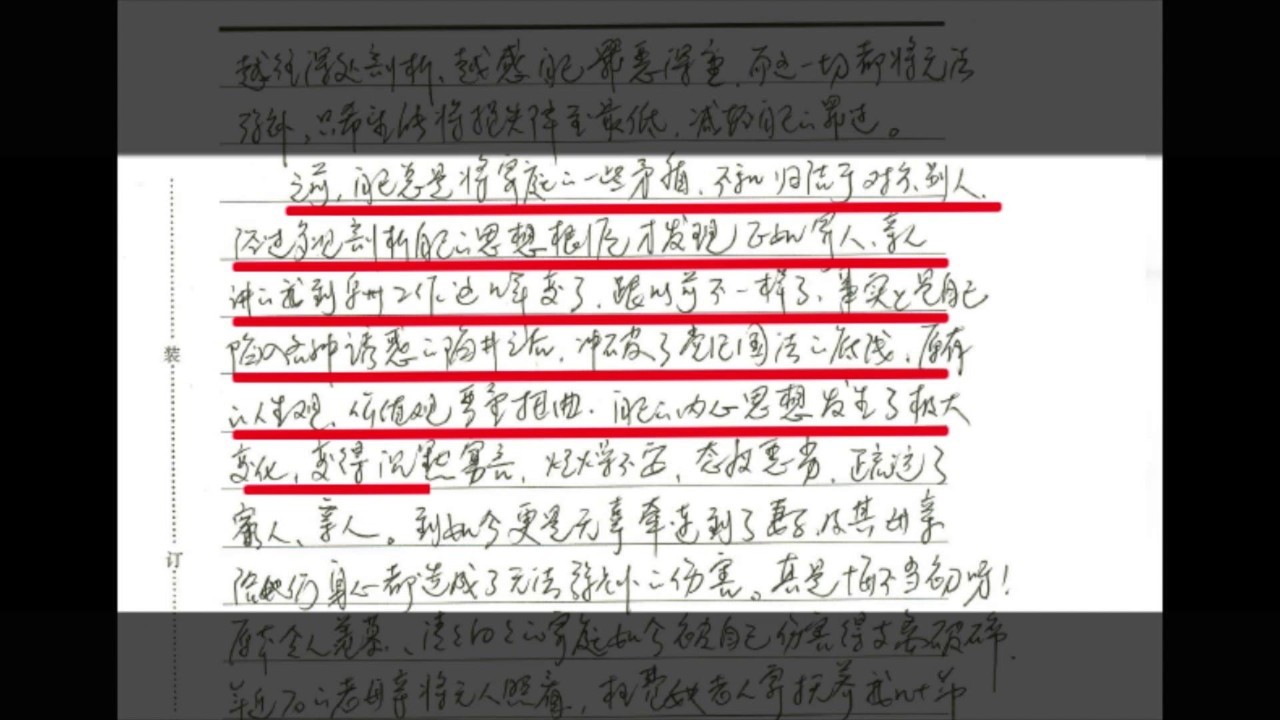 越往深处剖析、越感自己罪恶深重，而这一切都将无法
弥补，只希望能将损失降至最低，减轻自己的罪过。
之前，自己总是将家庭的一些矛盾、不和归结于对方、别人，
经过多次剖析自己的思想根源才发现正如家人、亲人
讲的我到 工作这几年变了，跟以前不一样了，事实上是自己
陷入各种诱惑的陷井之后，冲破了党纪国法的底线，原有
的人生观、价值观严重扭曲，自己的内心思想发生了极大
变化，变得沉默寡言，烂学不，态度恶劣，疏远了
家人、亲人。到如今更是无辜牵连到了妻子及其母亲
给她们身心都造成了无法弥补的伤害。真是悔不当初呀！
原本令人羡慕、清清白白的家庭如今被自己伤害得支离破碎，
年近70的老母亲将无人照顾，枉费她老人家抚养我几十年
装
订